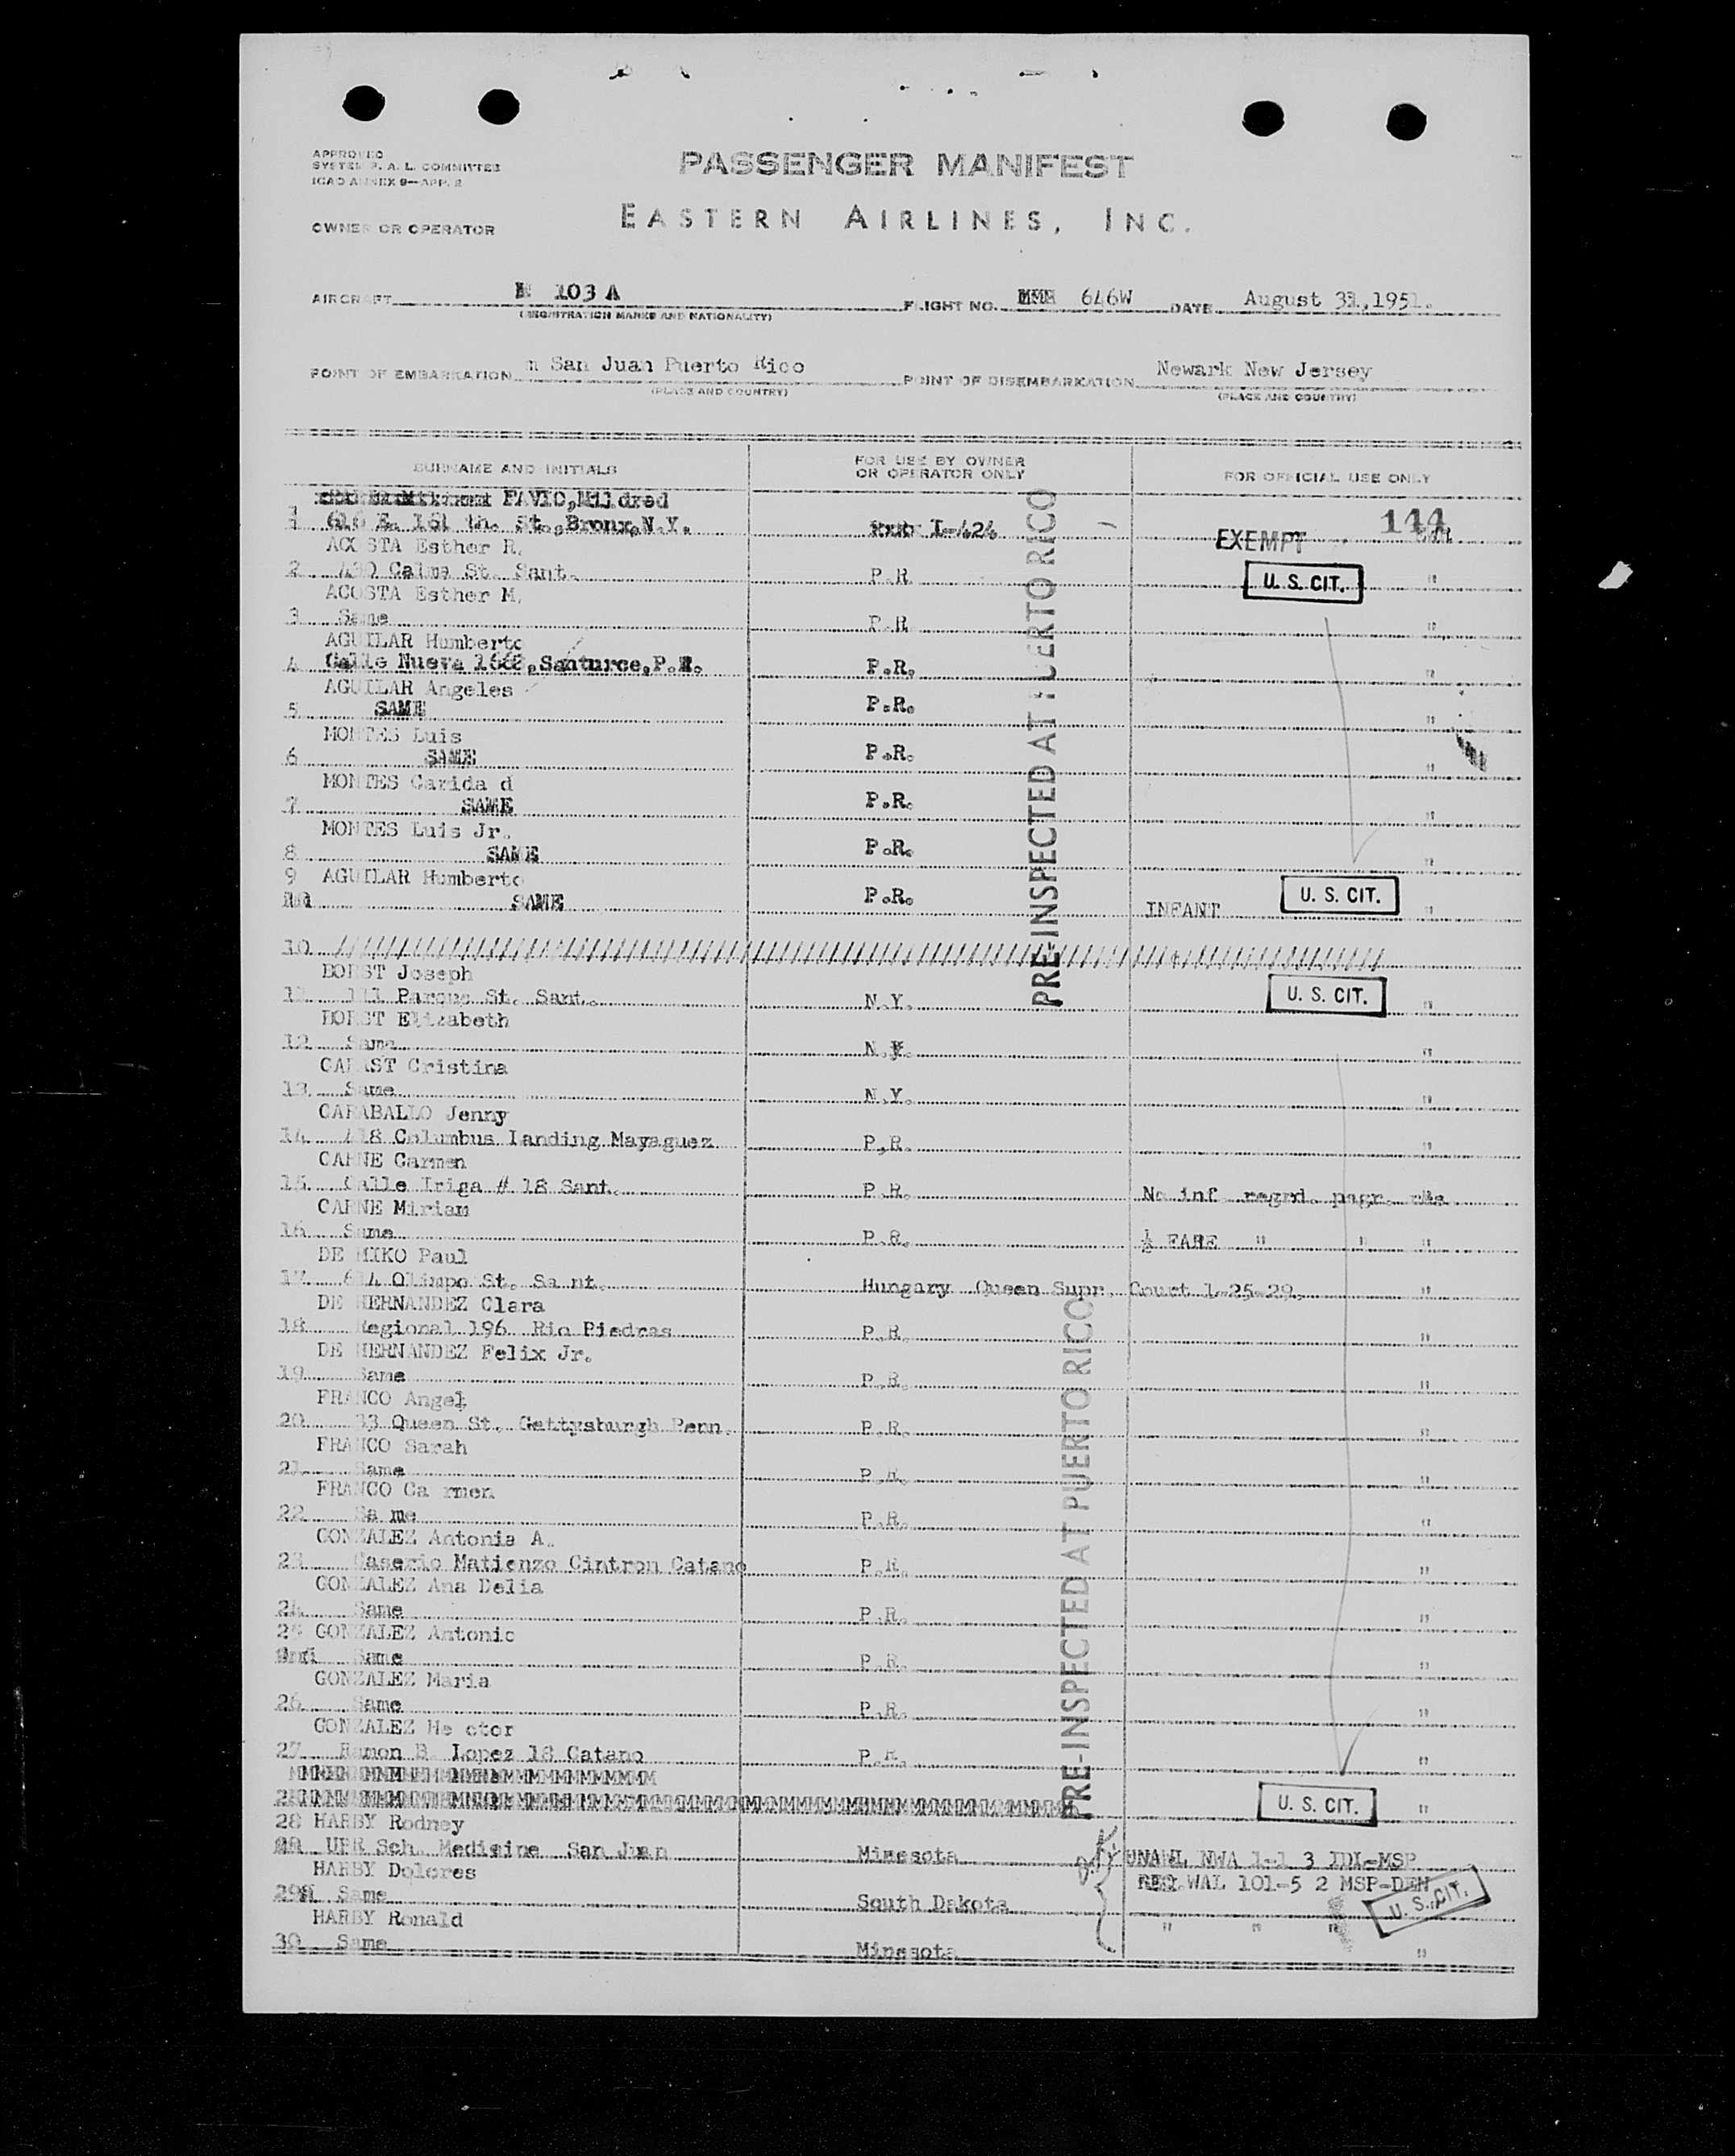 APPROVED
SYSTEM P. A. L. COMMITTEE
ICAO ANNEX 9—APP. 2
PASSENGER MANIFEST
OWNER OR OPERATOR
EASTERN AIRLINES, INC.
AIRCRAFT 103 A FLIGHT NO. 646W DATE August 31,1951.
(REGISTRATION MARKS AND NATIONALITY)
POINT OF EMBARKATION San Juan Puerto Rico POINT OF DISEMBARKATION Newark New Jersey
(PLACE AND COUNTRY) (PLACE AND COUNTRY)
SURNAME AND INITIALS FOR USE BY OWNER OR OPERATOR ONLY FOR OFFICIAL USE ONLY
FAVIC,Mildred
1 616 E. 161 th. St.,Bronx,N.Y. I-424 EXEMPT 144
ACOSTA Esther R.
2 St. Sant. P.R. U. S. CIT. "
ACOSTA Esther M.
3 Same P.R. "
AGUILAR Humberto
4 Calle Nueva Santurce,P.R. P.R. "
AGUILAR Angeles
5 SAME P.R. "
MONTES Luis
6 SAME P.R. "
MONTES Carida d
7 SAME P.R. "
MONTES Luis Jr.
8 SAME P.R. "
9 AGUILAR Humberto
SAME P.R. INFANT U. S. CIT. "
PRE-INSPECTED AT PUERTO RICO
10 ////////////////
BORST Joseph
11 St. Sant. N.Y. U. S. CIT. "
BORST Elizabeth
12 Same N.Y. "
Cristina
13 Same N.Y. "
CARABALLO Jenny
14 418 Columbus Landing Mayaguez P,R. "
CARNE Carmen
15 Calle Iriga # 18 Sant. P.R. No inf regrd. psgr.
CARNE Miriam
16 Same P.R. ½ FARE " " "
DE MIKO Paul
17 Olimpo St. Sa nt. Hungary Queen Supr. Court 1-25-29. "
DE HERNANDEZ Clara
18 Regional 196 Rio Piedras P.R. "
DE HERNANDEZ Felix Jr.
19 Same P.R. "
FRANCO Angel
20 33 Queen St. Gettysburgh Penn. P.R. "
FRANCO Sarah
21 Same P.R. "
FRANCO Ca rmen
22 Sa me P.R. "
GONZALEZ Antonia A.
23 Caserio Matienzo Cintron Catano P.R. "
GONZALEZ Ana Delia
24 Same P.R. "
25 GONZALEZ Antonio
Same P.R. "
GONZALEZ Maria
26 Same P.R. "
GONZALEZ He ctor
27 Ramon B. Lopez 18 Catano P.R. "
PRE-INSPECTED AT PUERTO RICO
U. S. CIT. "
28 HARBY Rodney
UPR Sch. Medicine San Juan Minesota UNAWL NWA 1-1 3 IDL-MSP
HARBY Dolores REQ WAL 101-5 2 MSP-DEN
29 Same South Dakota U. S. CIT.
HARBY Ronald " " "
30 Same Minesota "